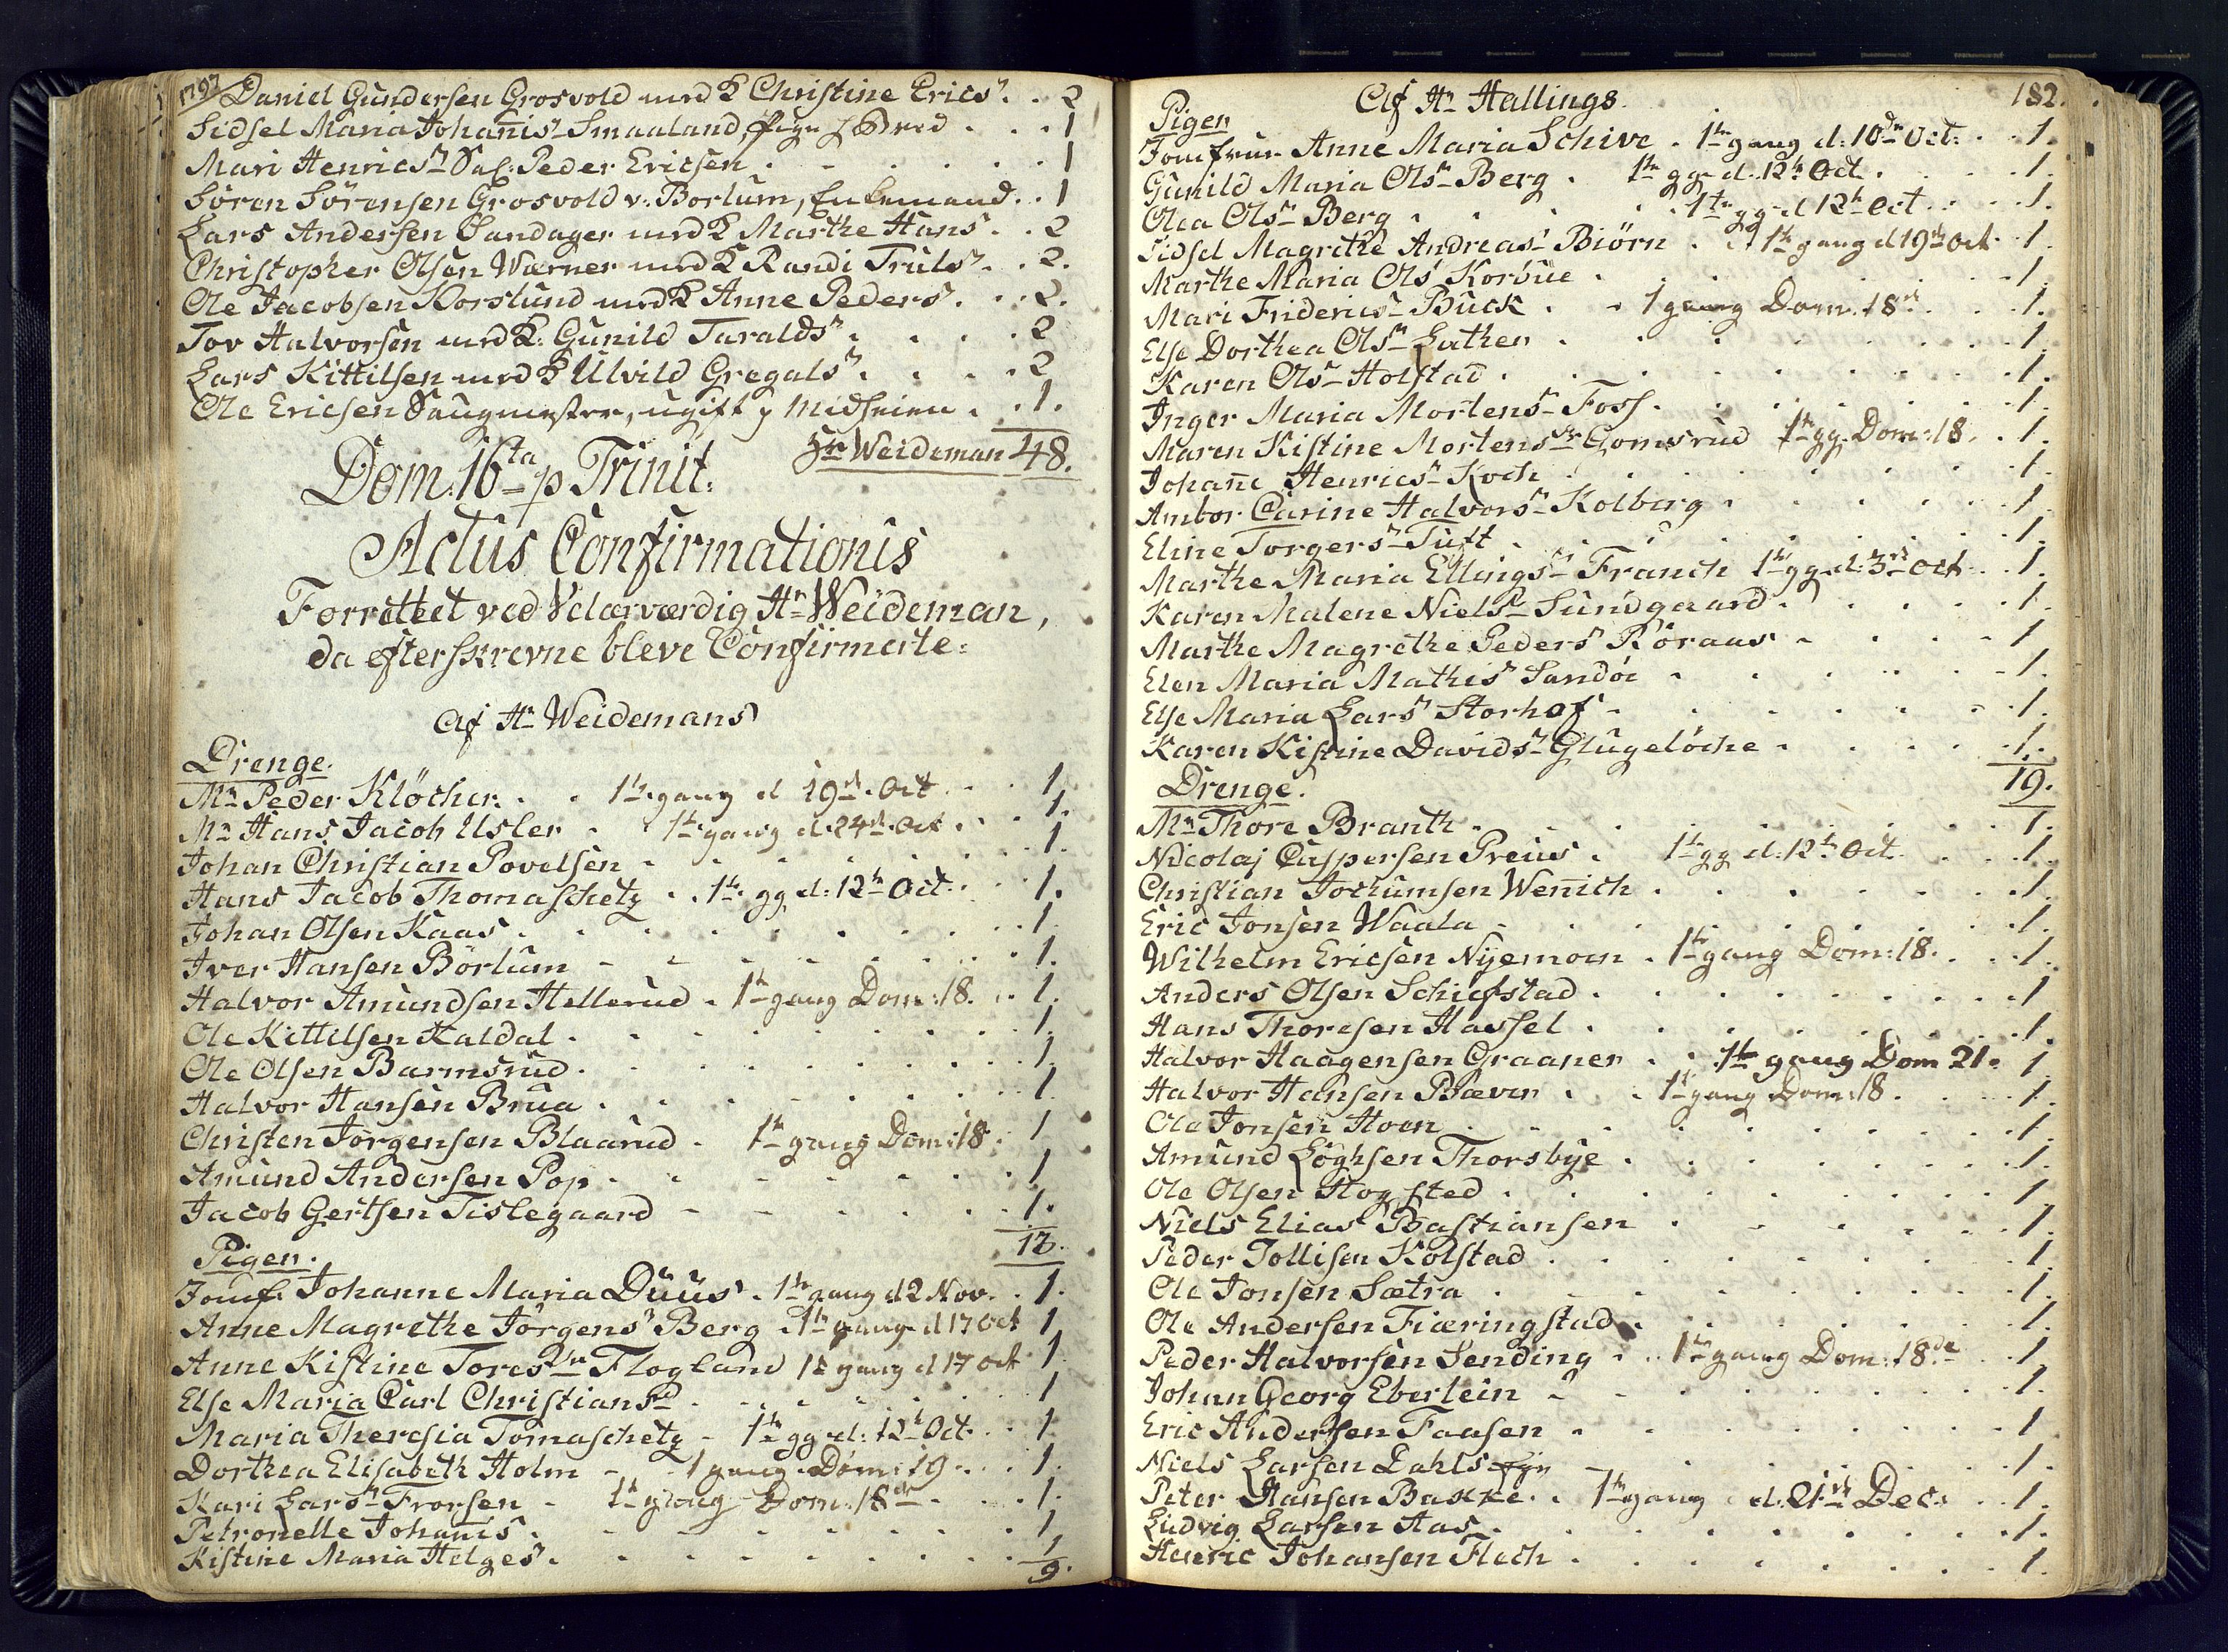 1792
Daniel Gundersen Grosvold med K Christine Erics. . . 2
Sidsel Maria Johanis Smaaland, . . . 1
Mari Henrics Sal: Peder Ericsen . . . 1
Søren Sörensen Grosvold v. Borlum, Enkemand . . 1
Lars Andersen Sandager med K Marthe Hans . . 2
Christopher Olsen Wærner med K Randi Truls . . 2.
Ole Jacobsen Korslund med K Anne Peders . . 2.
Tov Halvorsen med K: Gunild Taralds . . . 2
Lars Kittilsen med K Ulvild Gregals . . . 2
Ole Ericsen Saugmester, ugift p Midheien . . 1.
Hr Weideman 48.
Dom: 16ta p Trinit:
Actus Confirmationis
Forrettet ved Velærværdig Hr Weideman,
da efterskrevne bleve Confirmerte:
Af Hr Weidemans
Drenge.
Mr Peder Klöcher . . 1te gang d 19de Oct . . 1.
Mr Hans Jacob Usler . . 1te gang d. 24de Oct . . 1.
Johan Christian Povelsen . . . 1.
Hans Jacob Thomaschetz . . 1te gg d: 12te Oct: . . 1.
Johan Olsen Kaas . . . 1
Iver Hansen Börlum . . . 1.
Halvor Amundsen Hellerud . 1te gang Dom: 18. . . 1.
Ole Kittilsen Kaldal . . . 1.
Ole Olsen Barmsrud . . . 1.
Halvor Hansen Brua . . . 1.
Christen Jörgensen Blaarud . 1te gang Dom: 18. 1
Amund Andersen Pop . . . 1
Jacob Gertsen Tislegaard . . . 1.
13.
Pigen.
Jomf. Johanne Maria Duus . 1te gang d 2 Nov. . 1.
Anne Magrethe Jörgens Berg . 1te gang d 17 Oct 1
Anne Kistine Tores Floglam 1te gang d 17 Oct 1.
Else Maria Carl Christians . . . 1
Maria Theresia Tomaschetz - 1te gg d: 12te Oct. . 1
Dorthea Elisabeth Holm - 1 gang Dom: 19 . . 1.
Kari Lars Frorsen - 1te gang Dom: 18de . . 1.
Petronelle Johanis . . . 1
Kistine Maria Helges . . . 1
9.
182.
Af Hr Hallings
Pigen
Jomfrue Anne Maria Schive . 1te gang d: 10de Oct: . . 1.
Gunild Maria Ols Berg . 1te gg d. 12te Oct . . . 1.
Olea Ols Berg . . . 1te gg d 12te Oct . . . 1.
Sidsel Magrethe Andreas Biörn . . 1te gang d 19de Oct . 1.
Marthe Maria Ols Korsue . . . 1.
Mari Friderics Buck . . 1 gang Dom. 18de . . 1.
Else Dorthea Ols Luthen . . . 1.
Karen Ols Holstad . . . 1.
Inger Maria Mortens Foss . . . 1
Maren Kistine Mortens Gomsrud 1te gg. Dom: 18. . 1.
Johane Henrics Koch . . . 1.
Ambor Carine Halvors Kolberg . . . 1
Eline Torgers Tuft . . . 1.
Marthe Maria Ellings Franch 1te gg d: 3de Oct . . 1.
Karen Malene Niels Sundgaard . . . 1.
Marthe Magrethe Peders Röraas . . . 1
Elen Maria Mathis Sandöe . . . 1.
Else Maria Lars Storhof . . . 1.
Karen Kistine Davids Glugelöche . . . 1.
19.
Drenge.
Mr Thore Branth . . . 1.
Nicolaj Caspersen Preus . 1te gg d: 12te Oct. . . 1.
Christian Jochumsen Wenich . . . 1.
Eric Jonsen Waala . . . 1.
Wilhelm Ericsen Nyemoen . 1te gang Dom: 18. . . 1.
Anders Olsen Schiefstad . . . 1
Hans Thoresen Hassel . . . 1.
Halvor Haagensen Graaner . . 1te gang Dom 21. 1
Halvor Hansen Bæver . . 1te gang Dom: 18. . . 1.
Ole Jonsen Hoen . . . 1.
Amund Löghsen Thorsbye . . . 1.
Ole Olsen Hogsted . . . 1.
Niels Elias Bastiansen . . . 1.
Peder Tollisen Kolstad . . . 1.
Ole Jonsen Sætra . . . 1.
Ole Andersen Fiæringstad . . . 1.
Peder Halvorsen Sending . . 1te gang Dom: 18de . . 1
Johan Georg Eberlein . . . 1.
Eric Andersen Faasen . . . 1
Niels Larsen Dahls . . . 1.
Peter Hansen Bakke . . 1te gang d. 21de Dec: . . 1.
Ludvig Larsen Aas . . . 1.
Henric Johansen Flech . . . 1.